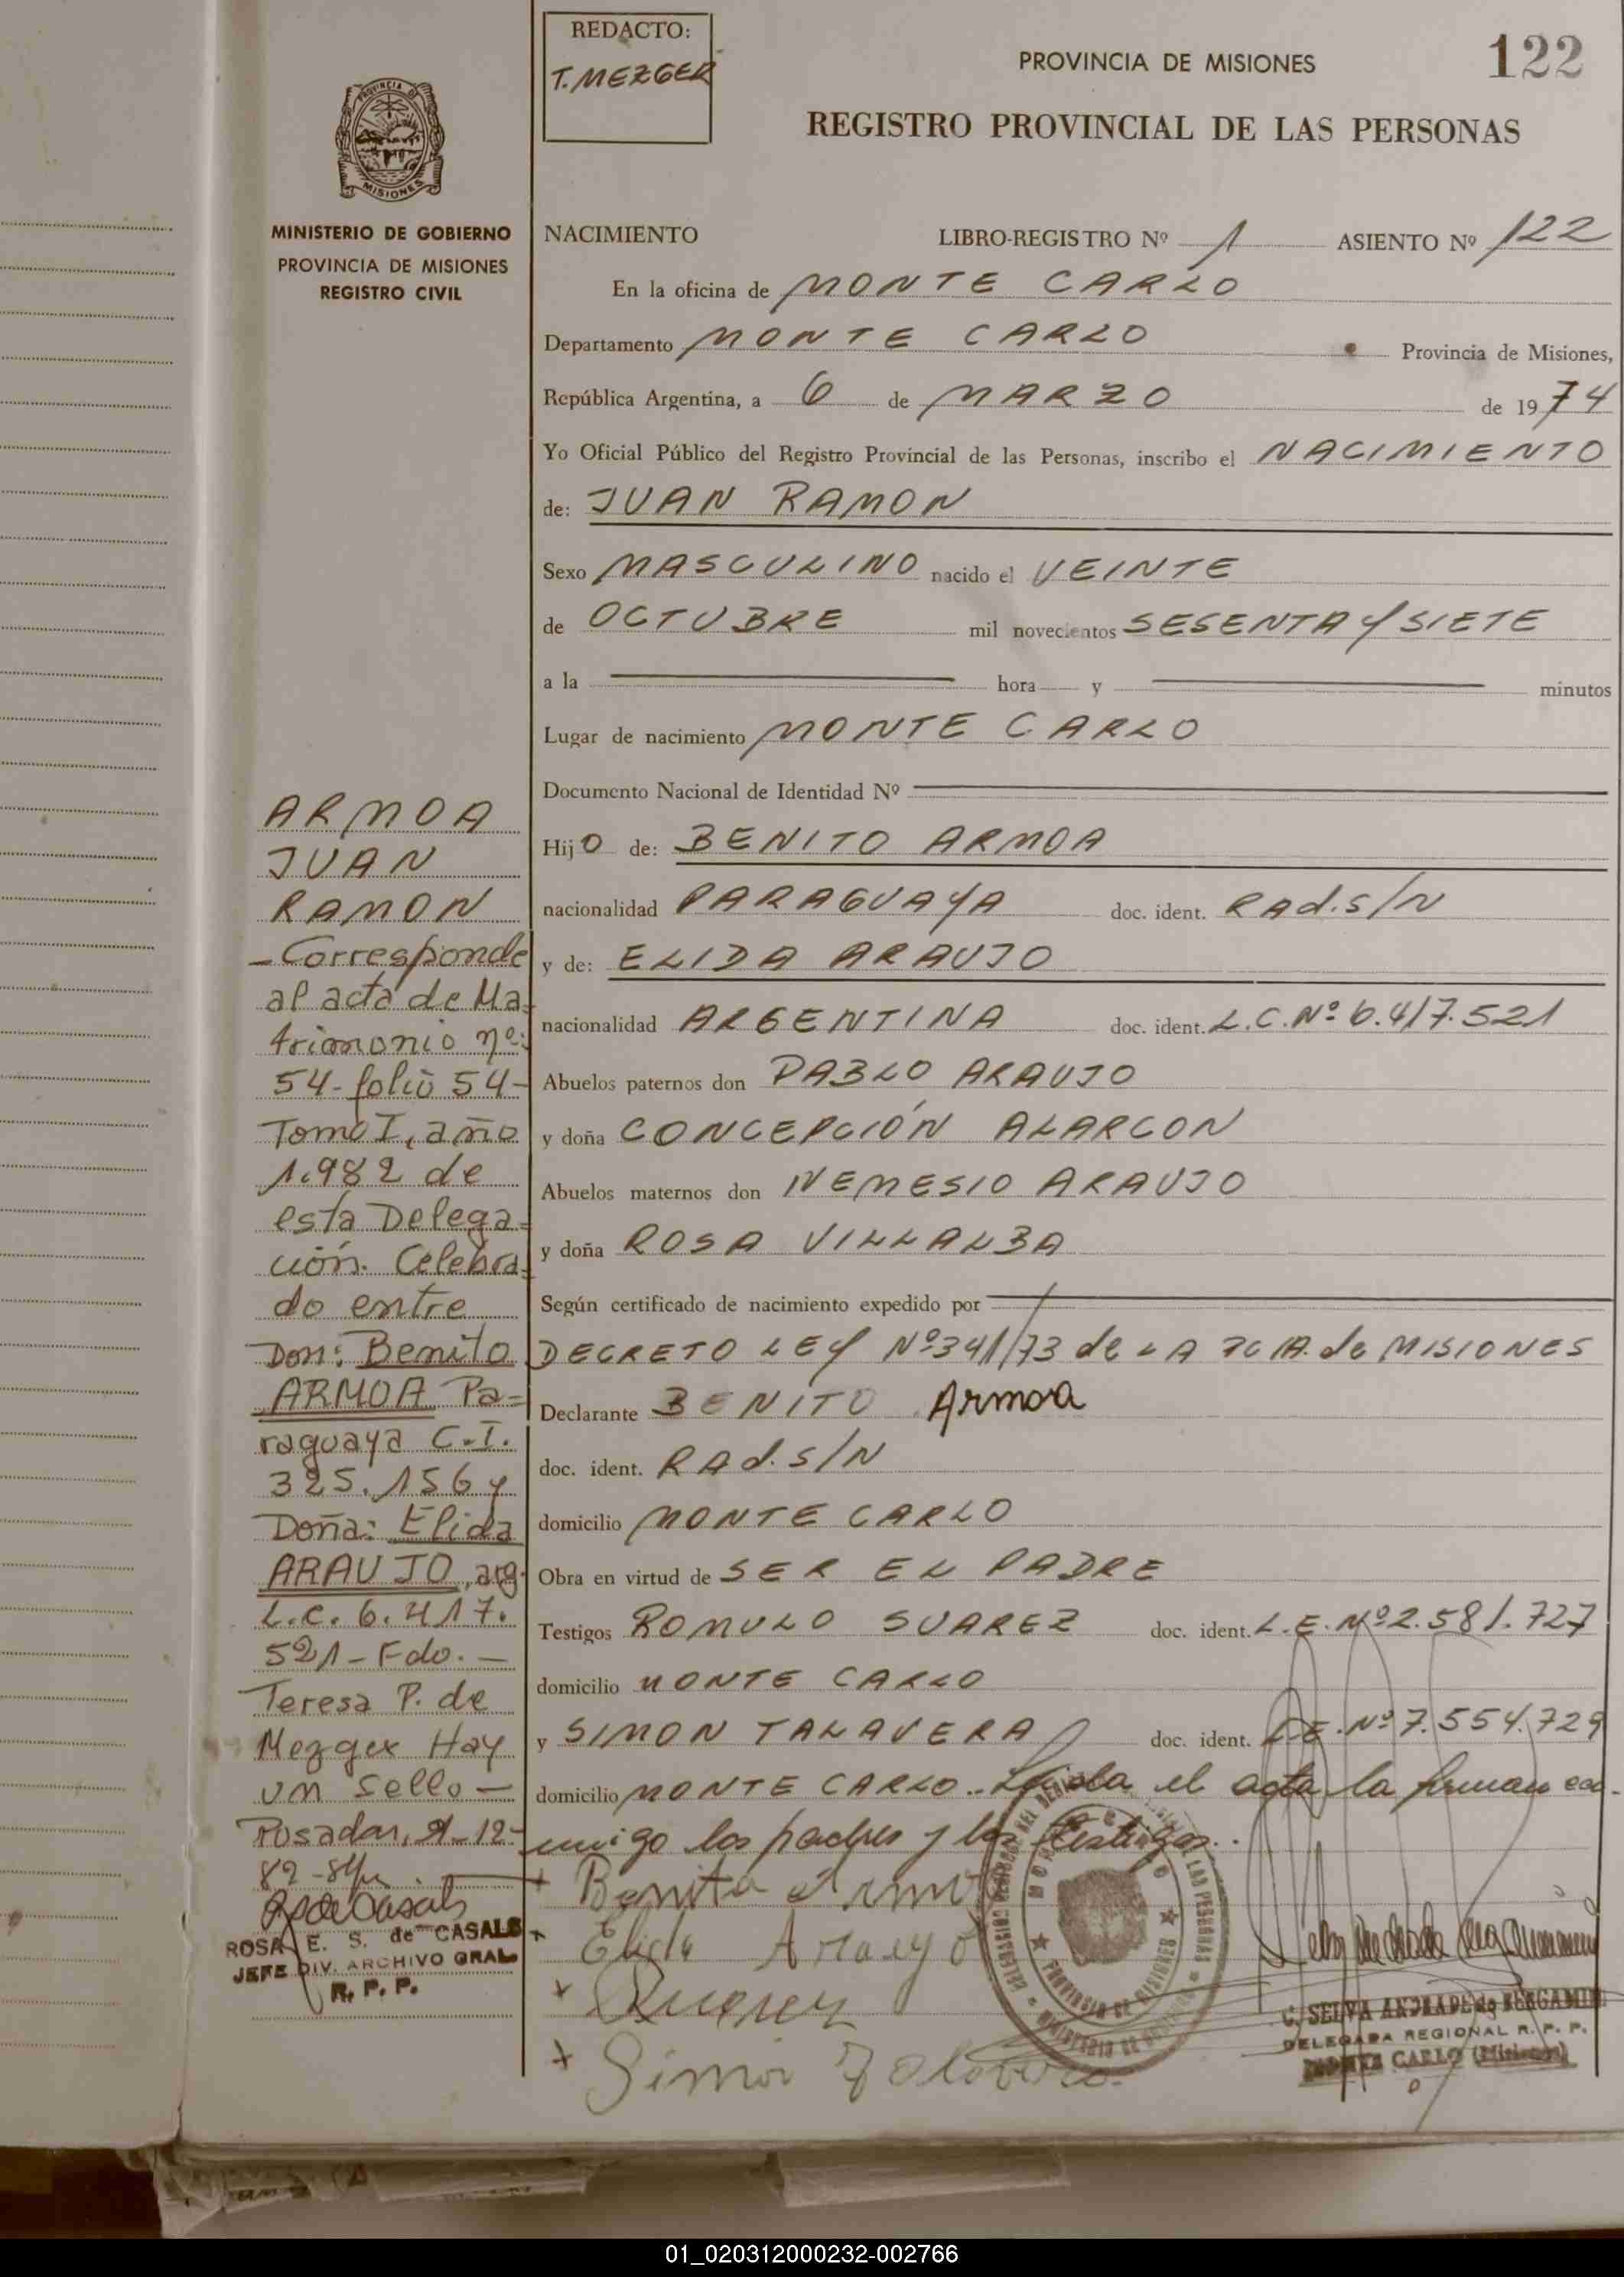 REDACTO:
T. MEZGER
PROVINCIA DE MISIONES
122
REGISTRO PROVINCIAL DE LAS PERSONAS
PROVINCIA DE
MISIONES
MINISTERIO DE GOBIERNO
PROVINCIA DE MISIONES
REGISTRO CIVIL
NACIMIENTO LIBRO-REGISTRO Nº 1 ASIENTO Nº 122
En la oficina de MONTE CARLO
Departamento MONTE CARLO Provincia de Misiones,
República Argentina, a 6 de MARZO de 1974
Yo Oficial Público del Registro Provincial de las Personas, inscribo el NACIMIENTO
de: JUAN RAMON
Sexo MASCULINO nacido el VEINTE
de OCTUBRE mil novecientos SESENTA Y SIETE
a la hora y minutos
Lugar de nacimiento MONTE CARLO
Documento Nacional de Identidad Nº
Hijo de: BENITO ARMOA
nacionalidad PARAGUAYA doc. ident. RAd. S/N
y de: ELIDA ARAUJO
nacionalidad ARGENTINA doc. ident. L.C. Nº 6.417.521
Abuelos paternos don PABLO ARAUJO
y doña CONCEPCIÓN ALARCON
Abuelos maternos don NEMESIO ARAUJO
y doña ROSA VILLALBA
Según certificado de nacimiento expedido por
DECRETO LEY Nº 341/73 de LA PCIA. de MISIONES
Declarante BENITO Armoa
doc. ident. RAd. S/N
domicilio MONTE CARLO
Obra en virtud de SER EL PADRE
Testigos ROMULO SUAREZ doc. ident. L.E. Nº 2.581.727
domicilio MONTE CARLO
y SIMON TALAVERA doc. ident. L.E. Nº 7.554.729
domicilio MONTE CARLO.. Leida el acta la firman con-
migo los padres y los testigos..
Benito Armoa
Elida Araujo
Simon Talavera
C. SELVA ANDRADE de BERGAMINI
DELEGADA REGIONAL R. P. P.
MONTE CARLO (Misiones)
ARMOA
JUAN
RAMON
- Corresponde
al acta de Ma-
trimonio nº:
54- folio 54-
Tomo I, año
1.982 de
esta Delega-
ción. Celebra-
do entre
Don: Benito
ARMOA Pa-
raguaya C.I.
325.156 y
Doña: Elida
ARAUJO, arg.
L.C. 6.417.
521- Fdo. -
Teresa P. de
Mezger Hay
un sello -
Posadas, 21-12-
82
ROSA E. S. de CASALS
JEFE DIV. ARCHIVO GRAL
R. P. P.
01_020312000232-002766